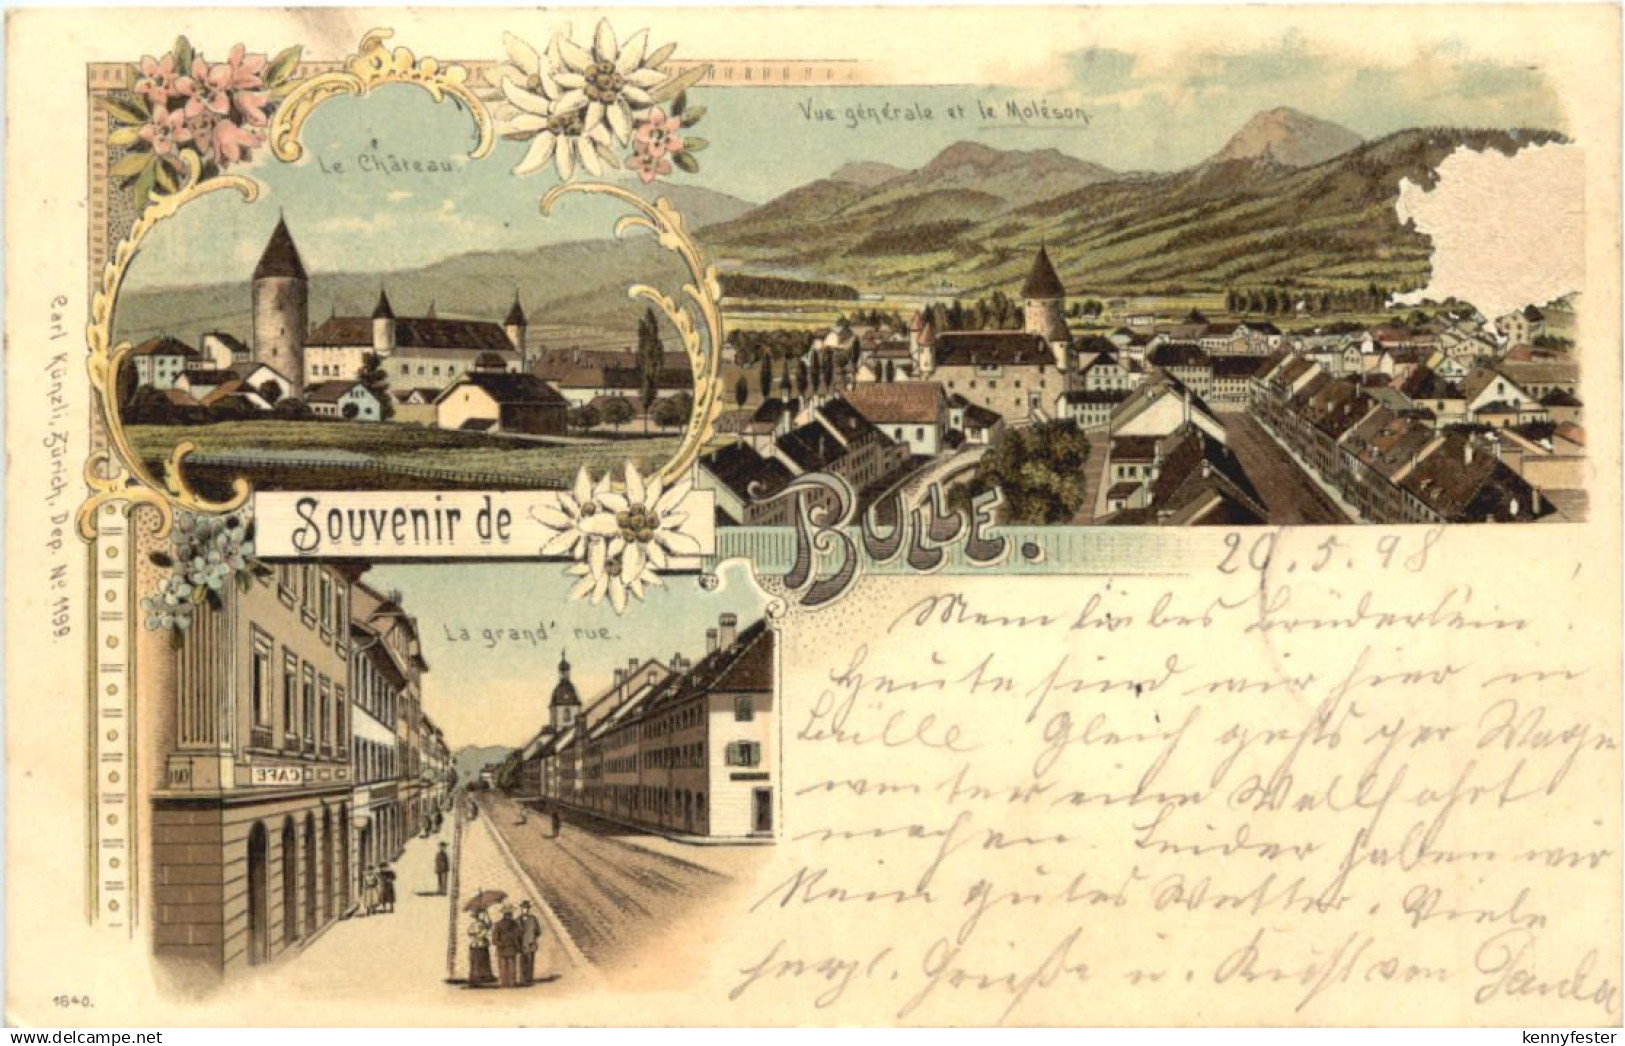 Le Château.
Vue générale et le Moléson.
Souvenir de
BULLE.
La grand' rue.
CAFE
Carl Künzli, Zürich, Dep. No 1199.
1640.
20.5.98
Mein liebes Brüderlein!
Heute sind wir hier in
Bülle. Gleich gehts per Wage
weiter eine Wallfahrt
machen. Leider haben wir
kein gutes Wetter. Viele
herzl. Grüße u. Kuss von Paula
kennyfester